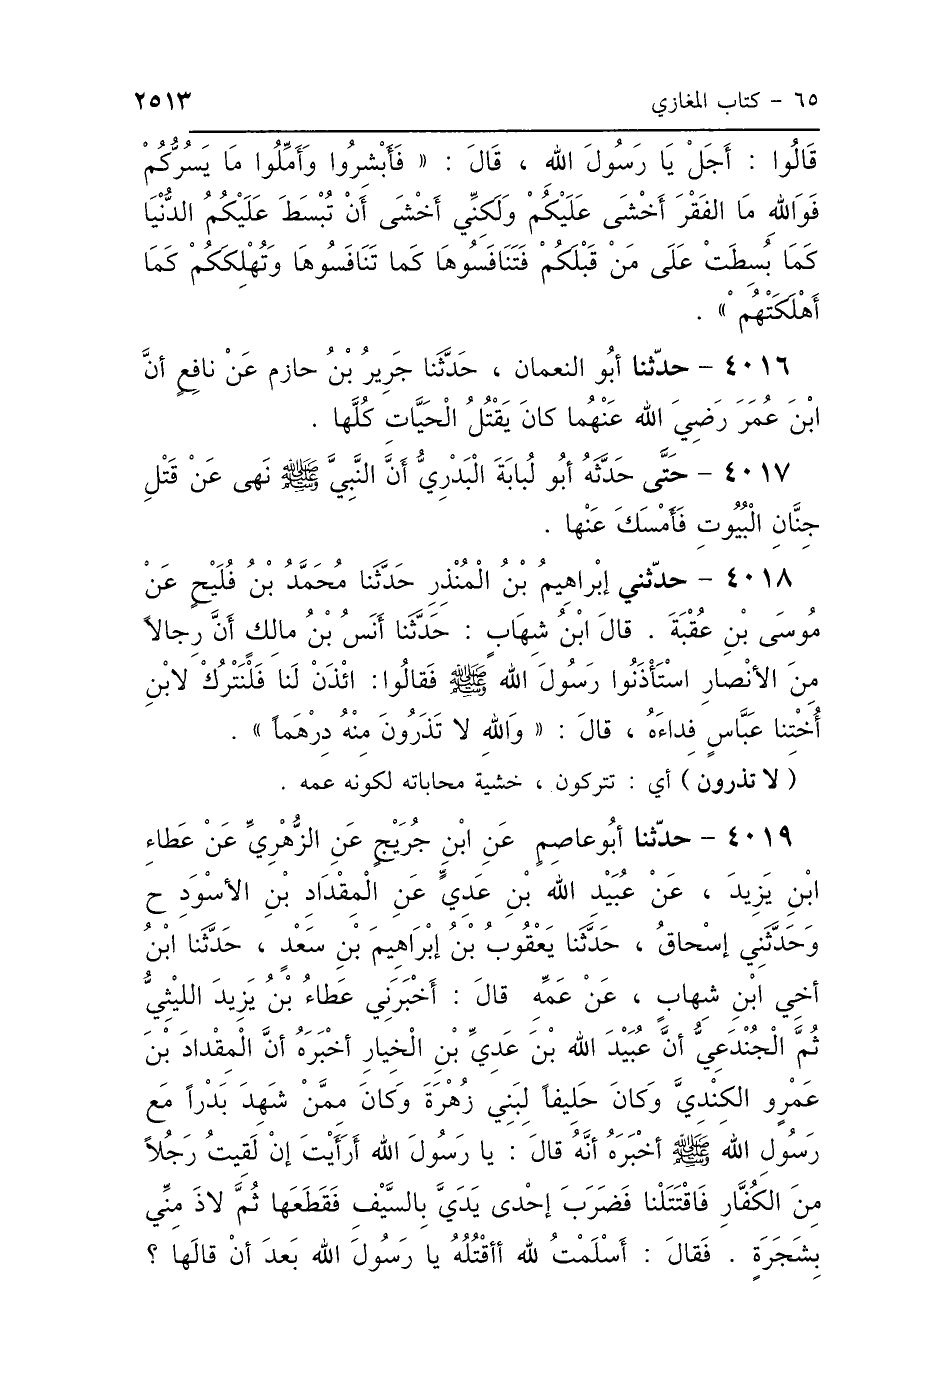 ٦٥ - كتاب المغازي ٢٥١٣
قَالُوا : أَجَلْ يَا رَسُولَ الله ، قَالَ : « فَأَبْشِرُوا وَأَمِّلُوا مَا يَسُرُّكُمْ
فَوَاللهِ مَا الفَقْرَ أَخْشَى عَلَيْكُمْ وَلَكِنِّي أَخْشَى أَنْ تُبْسَطَ عَلَيْكُمُ الدُّنْيَا
كَمَا بُسِطَتْ عَلَى مَنْ قَبْلَكُمْ فَتَنَافَسُوهَا كما تَنَافَسُوهَا وَتُهْلِكَكُمْ كَمَا
أَهْلَكَتْهُمْ » .
٤٠١٦ - حدّثنا أبُو النعمان ، حَدَّثَنا جَرِيرُ بْنُ حازم عَنْ نافِعٍ أنَّ
ابْنَ عُمَرَ رَضِيَ الله عَنْهُما كانَ يَقْتُلُ الْحَيَّاتِ كُلَّها .
٤٠١٧ - حَتَّى حَدَّثَهُ أبُو لُبابَةَ الْبَدْرِيُّ أَنَّ النَّبِيَّ ﷺ نَهى عَنْ قَتْلِ
جِنَّانِ الْبُيُوتِ فَأَمْسَكَ عَنْها .
٤٠١٨ - حدّثني إبْراهِيمُ بْنُ الْمُنْذِرِ حَدَّثَنا مُحَمَّدُ بْنُ فُلَيْحٍ عَنْ
مُوسَى بْنِ عُقْبَةَ . قالَ ابْنُ شِهَابٍ : حَدَّثَنا أنَسُ بْنُ مالِكٍ أنَّ رِجالاً
مِنَ الأنْصارِ اسْتَأْذَنُوا رَسُولَ الله ﷺ فَقالُوا: ائْذَنْ لَنا فَلْنَتْرُكْ لابْنِ
أُخْتِنا عَبَّاسٍ فِداءَهُ ، قالَ : « وَاللهِ لا تَذَرُونَ مِنْهُ دِرْهَماً » .
( لا تذرون ) أي : تتركون ، خشية محاباته لكونه عمه .
٤٠١٩ - حدّثنا أبُو عاصِمٍ عَنِ ابْنِ جُرَيْجٍ عَنِ الزُّهْرِيِّ عَنْ عَطاءِ
ابْنِ يَزِيدَ ، عَنْ عُبَيْدِ الله بْنِ عَدِيٍّ عَنِ الْمِقْدَادِ بْنِ الأسْوَدِ ح
وَحَدَّثَنِي إسْحاقُ ، حَدَّثَنا يَعْقُوبُ بْنُ إبْرَاهِيمَ بْنِ سَعْدٍ ، حَدَّثَنا ابْنُ
أخِي ابْنِ شِهابٍ ، عَنْ عَمِّهِ قالَ : أَخْبَرَنِي عَطاءُ بْنُ يَزِيدَ الليْثِيُّ
ثُمَّ الْجُنْدَعِيُّ أنَّ عُبَيْدَ الله بْنَ عَدِيِّ بْنِ الْخِيارِ أخْبَرَهُ أنَّ الْمِقْدادَ بْنَ
عَمْرٍو الكِنْدِيَّ وَكانَ حَلِيفاً لِبَنِي زُهْرَةَ وَكانَ مِمَّنْ شَهِدَ بَدْراً مَع
رَسُولِ الله ﷺ أخْبَرَهُ أنَّهُ قالَ : يا رَسُولَ الله أرَأَيْتَ إنْ لَقِيتُ رَجُلاً
مِنَ الكُفَّارِ فَاقْتَتَلْنا فَضَرَبَ إحْدى يَدَيَّ بالسَّيْفِ فَقَطَعَها ثُمَّ لاذَ مِنِّي
بِشَجَرَةٍ . فَقالَ : أَسْلَمْتُ لله أأقْتُلُهُ يا رَسُولَ الله بَعدَ أنْ قالَها ؟